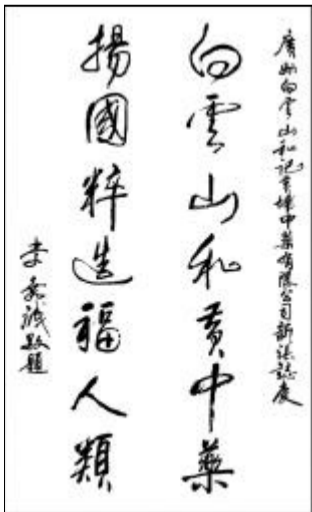 廣州白雲山和記黃埔中藥有限公司新張誌慶
白雲山和黃中藥
揚國粹造福人類
李誠敬題